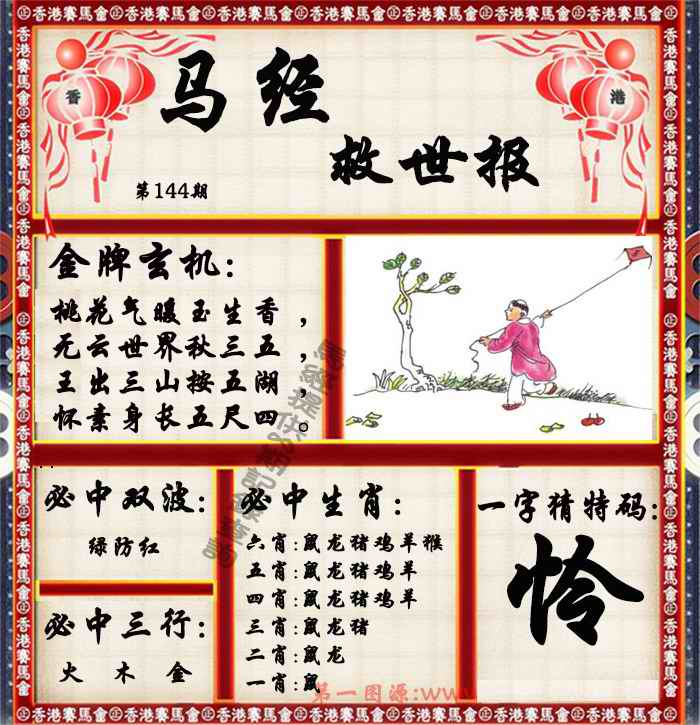 香港賽馬會
香 港
马经
救世报
第144期
金牌玄机：
桃花气暖玉生香，
无云世界秋三五，
王出三山按五湖，
怀素身长五尺四。
必中双波：
绿防红
必中三行：
火 木 金
必中生肖：
六肖:鼠龙猪鸡羊猴
五肖:鼠龙猪鸡羊
四肖:鼠龙猪鸡羊
三肖:鼠龙猪
二肖:鼠龙
一肖:鼠
一字猜特码：
怜
第一图源:www